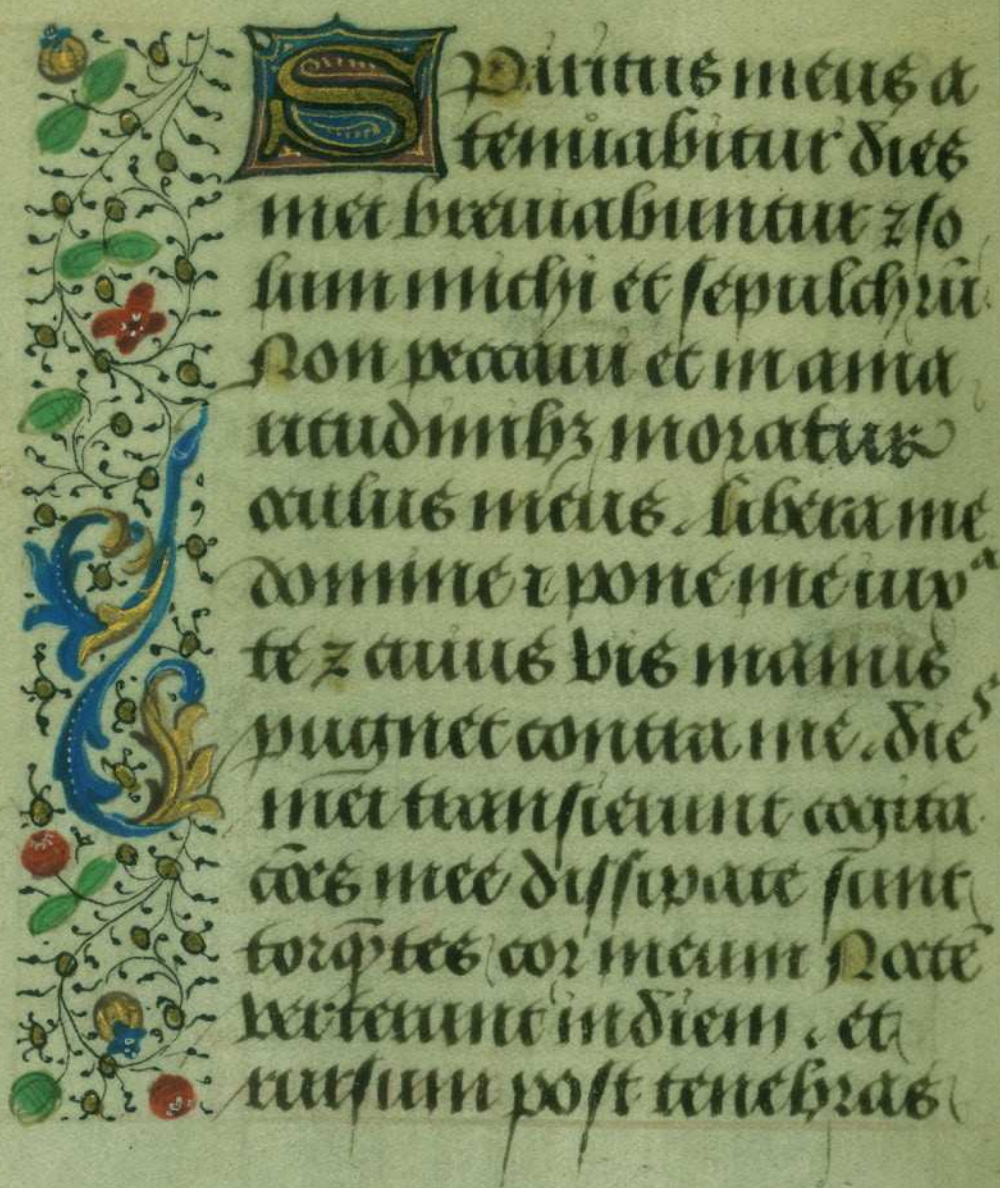 Spiritus meus a
tenuabitur dies
mei breuiabuntur ⁊ so
lum michi et sepulchrū
Non peccaui et in ama
ritudinibꝫ moratur
oculus meus. libera me
domine ⁊ pone me iuxᵃ
te ⁊ cuius vis manus
pugnet contra me. dies
mei transierunt cogita
cōes mee dissipate sunt
torq̄tes cor meum Noctē
verterunt in diem. et
rursum post tenebras